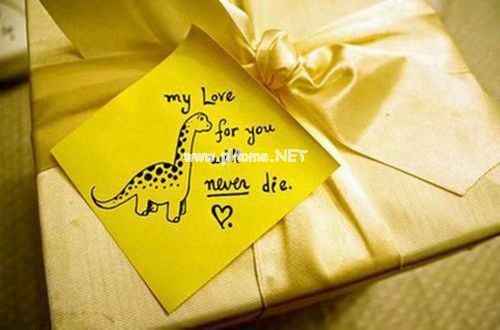 my Love
for you
never die.
www.qHome.NET